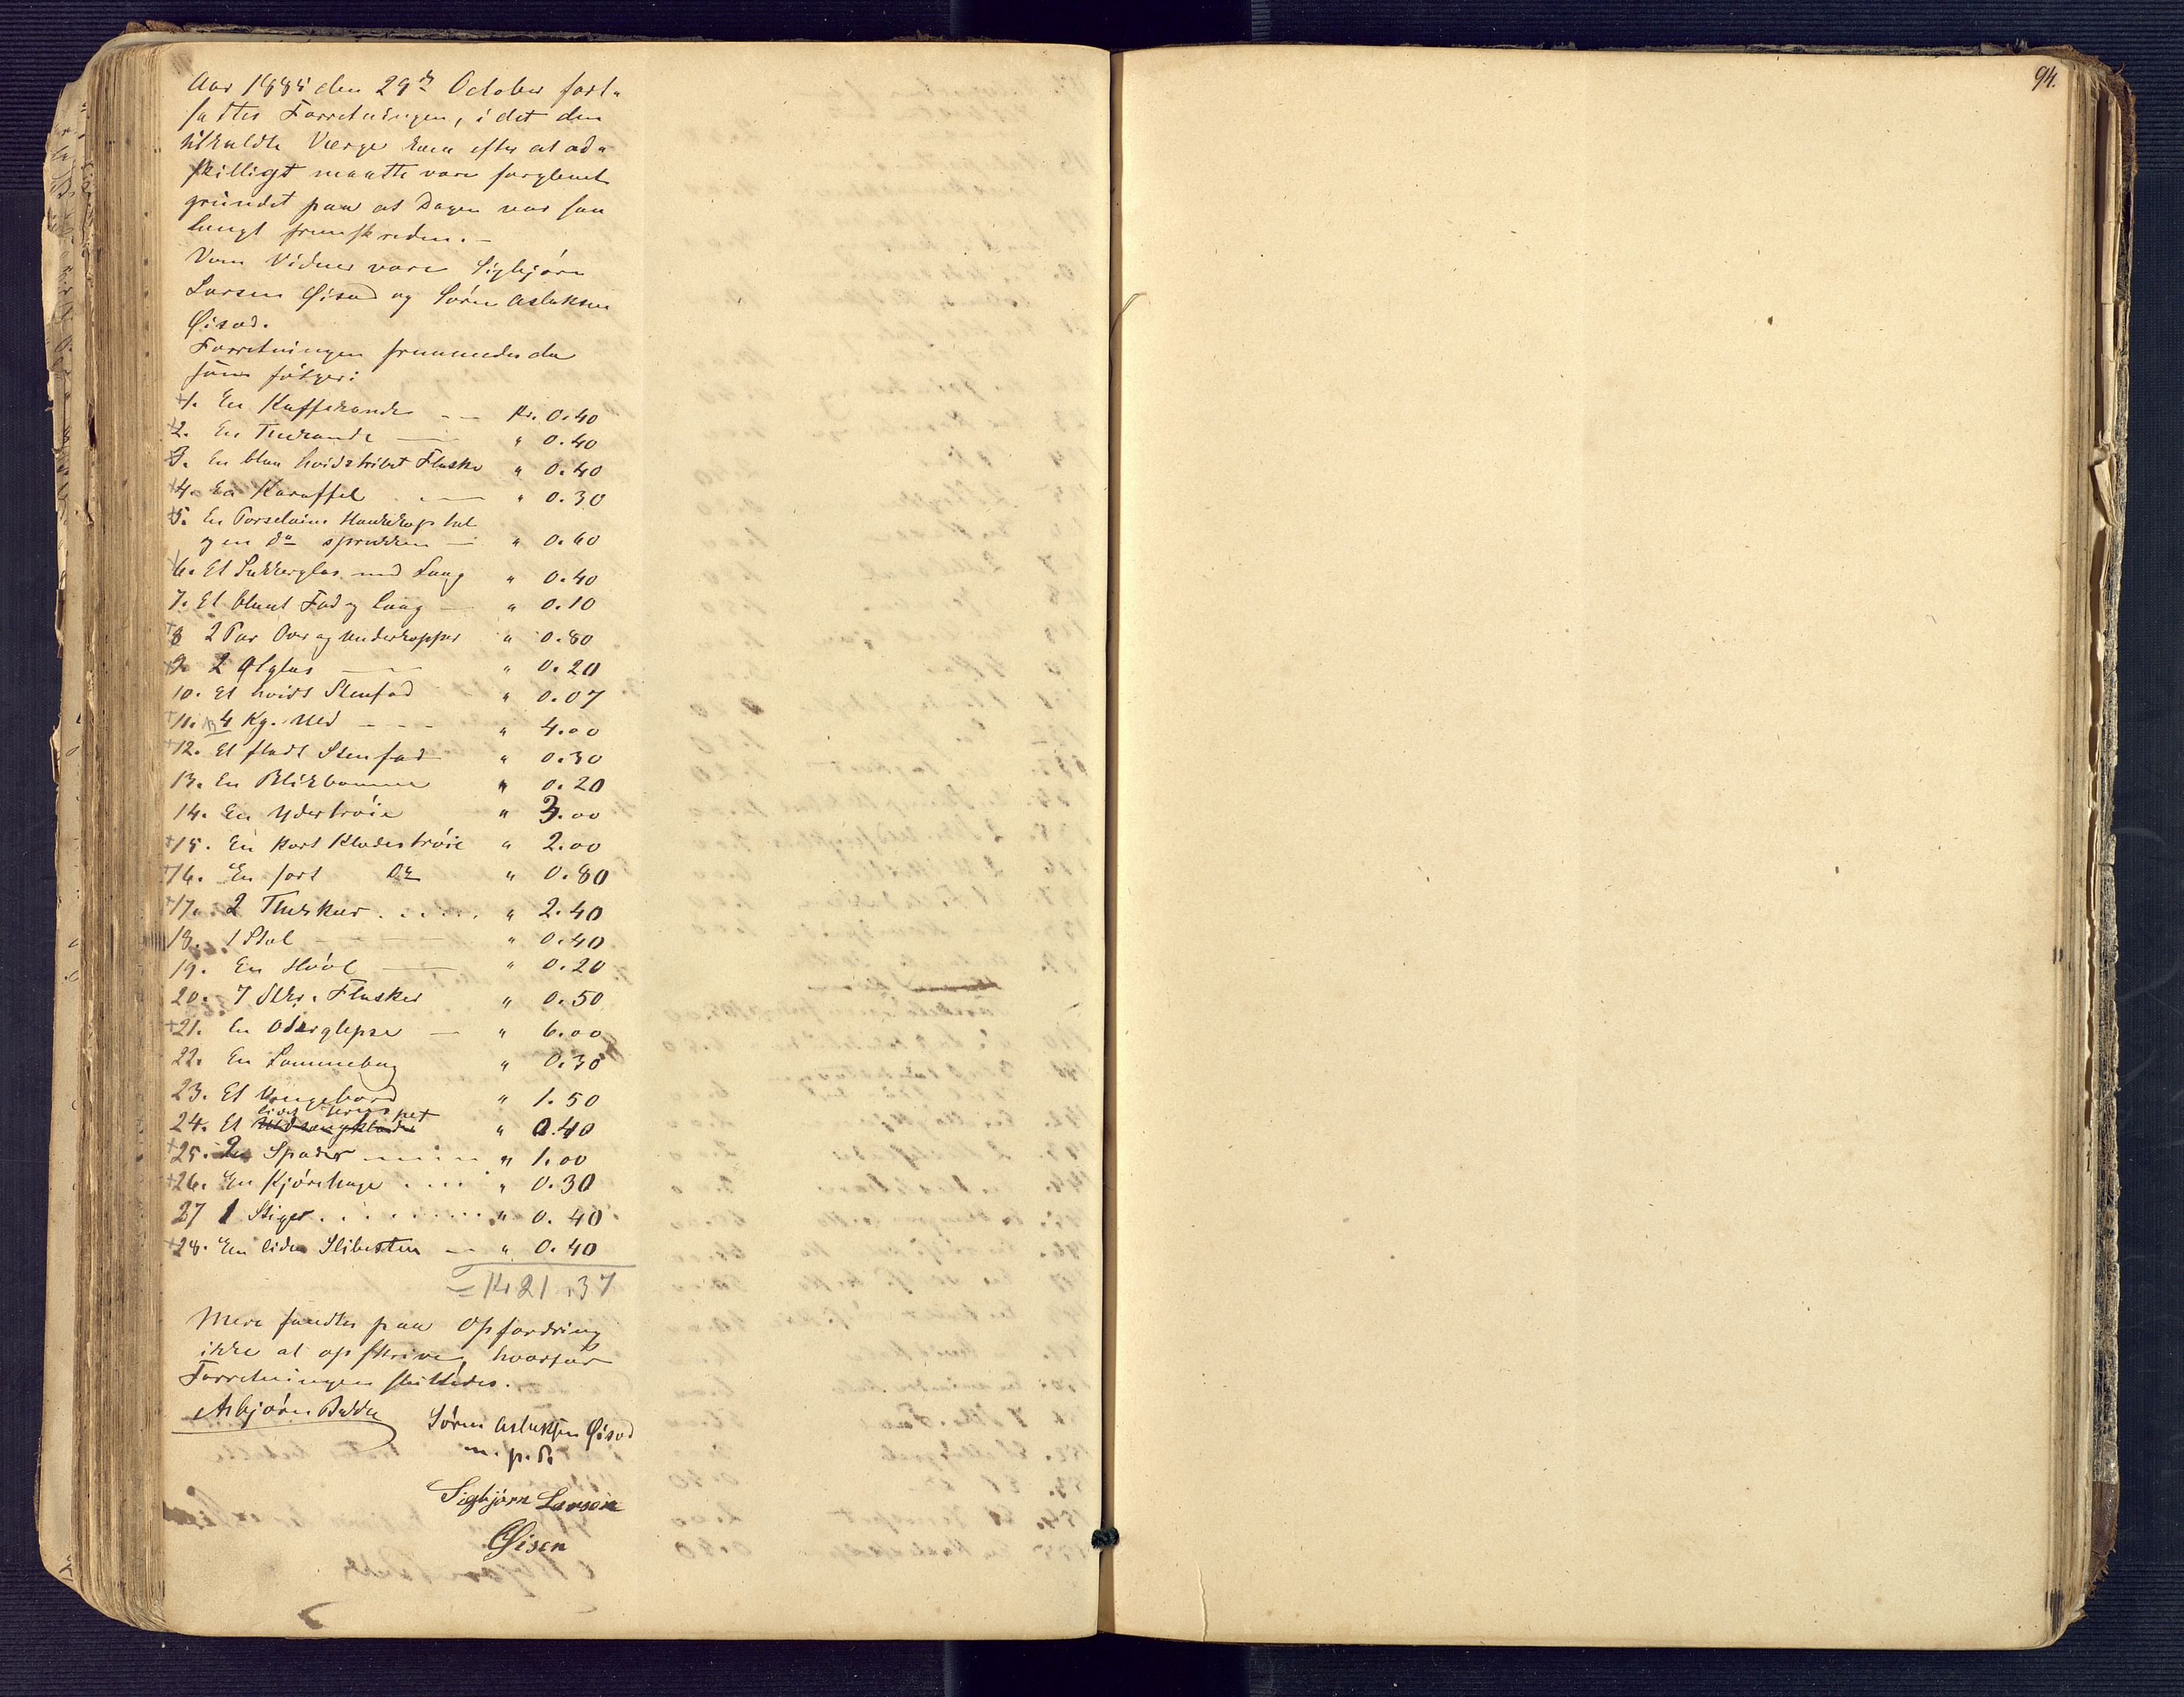 Aar 1885 den 29de October fort-
sattes Forretningen, idet den
tilkaldte Værge kom efter at ad-
skilligt maatte være forglemt
grundet paa at Dagen var saa
langt fremskreden. -
Som Vidner vare Sigbjørn
Larsen Øisad og Søren Aslaksen
Øisad.
Forretningen fremmedes da
som følger:
1. En Kaffekande — Kr. 0.40
2. En Thekande — " 0.40
3. En blaa hvidstribet Flaske " 0.40
4. En Karaffel — " 0.30
5. En Porselains Hankekop hel
og en do sprukken — " 0.60
6. Et Sukkerglas med Laag " 0.40
7. Et blaat Fad og Laag — " 0.10
8 2 Par Over og Underkopper " 0.80
9. 2 Ølglas — " 0.20
10. Et hvidt Stenfad " 0.07
11. 4 Kg. Uld - - - " 4.00
12. Et fladt Stenfad " 0.30
13. En Blikbomme " 0.20
14. En Ydertrøie " 3.00
15. En kort Klædestrøie " 2.00
16. En sort Do " 0.80
17. 2 Theskeer . . . . . " 2.40
18. 1 Stol — " 0.40
19. En Høvl — " 0.20
20. 7 Stkr. Flasker " 0.50
21. En Oderglepse — " 6.00
22. En Lommebog " 0.30
23. Et Vængebord " 1.50
lidet
24. Et " 0.40
25. 2 Spader — " 1.00
26. En Kjørehage . . . . " 0.30
27 1 Stiger . . . . . . . " 0.40
28. En liden Slibesten — " 0.40
= Kr 21.37
Mere fandtes paa Opfordring
ikke at opskrive, hvorfor
Forretningen sluttedes.
Asbjørn Bakke
Søren Aslaksen Øisad
m. p. P.
Sigbjørn Larsen
Øisen
94.